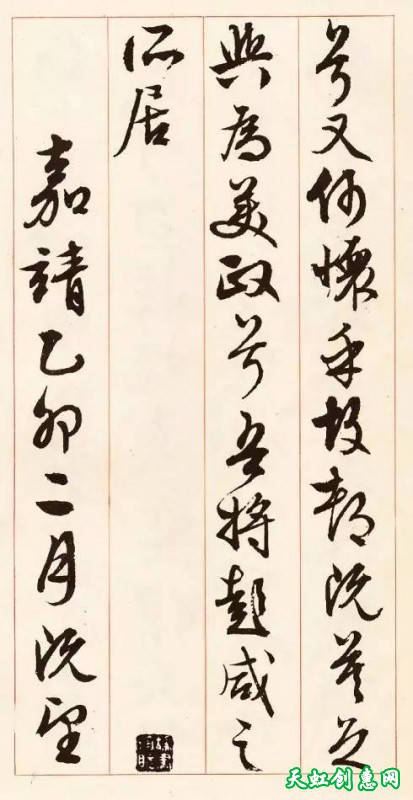 兮又何懷乎故都既莫足
與為美政兮吾將彭咸之
所居
嘉靖乙卯二月既望
天虹创惠网